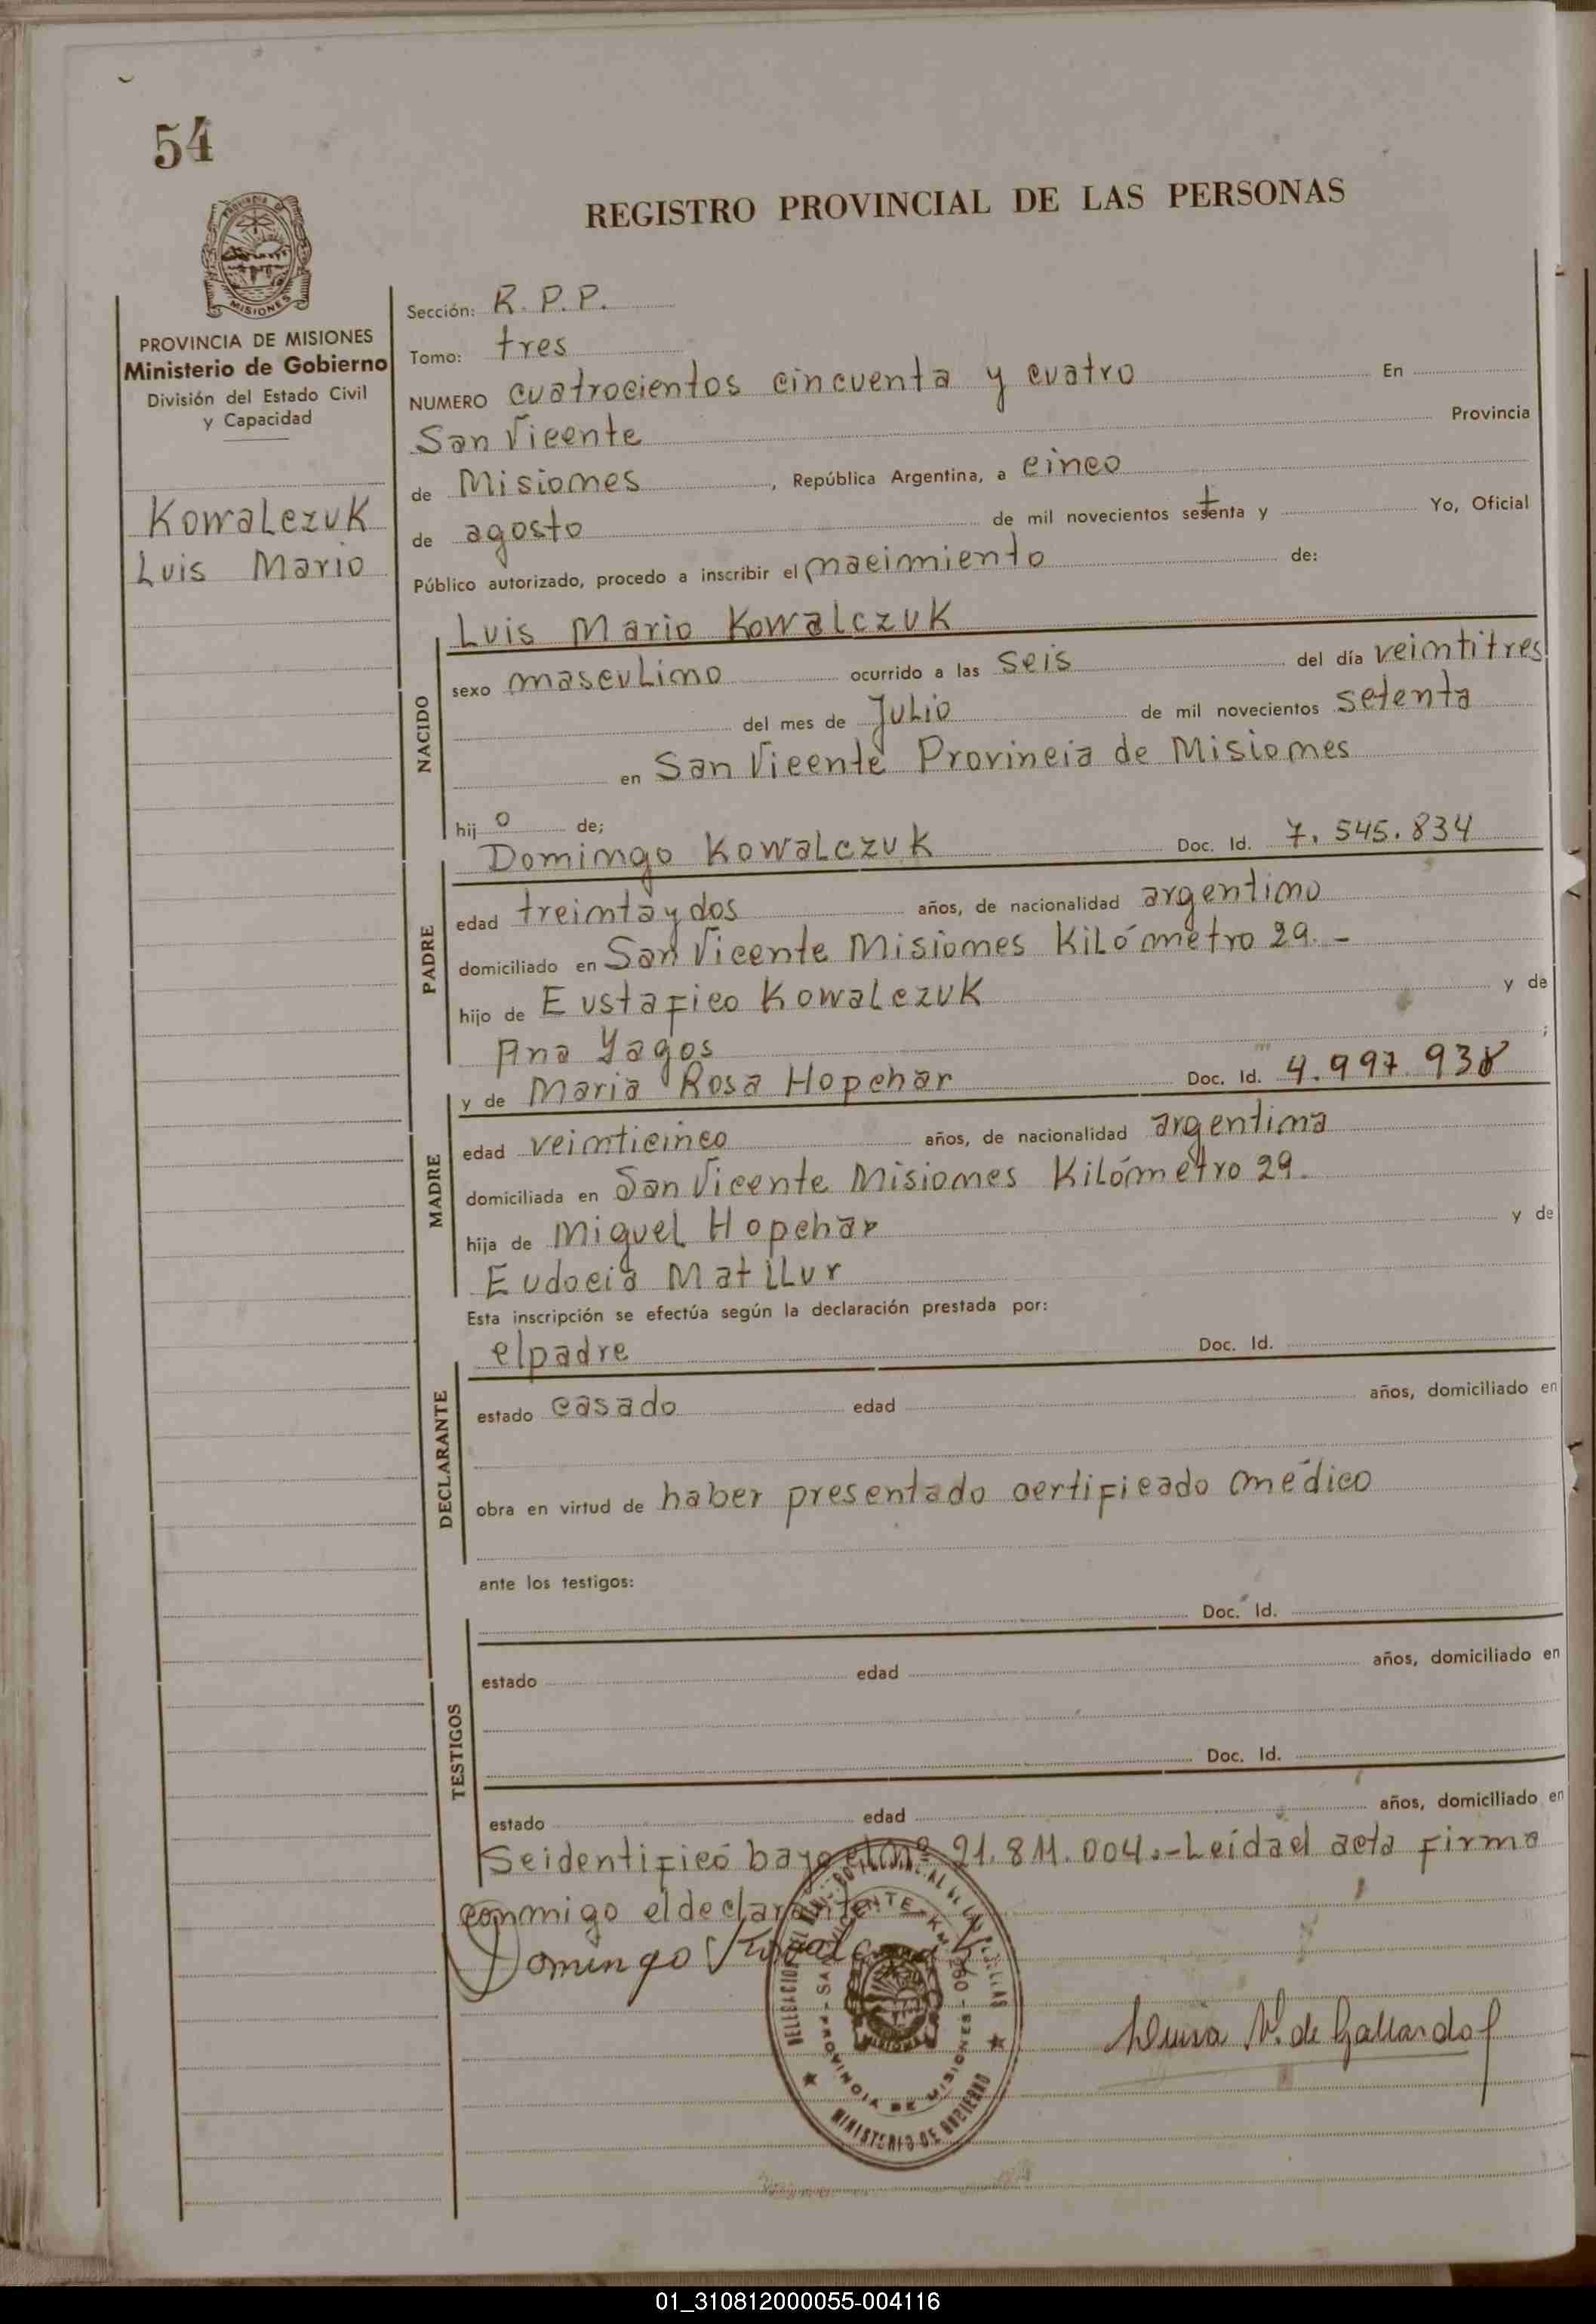 54
REGISTRO PROVINCIAL DE LAS PERSONAS
MISIONES
PROVINCIA DE MISIONES
Ministerio de Gobierno
División del Estado Civil
y Capacidad
Kowalczuk
Luis Mario
Sección: R. P. P.
Tomo: tres
NUMERO cuatrocientos cincuenta y cuatro En
San Vicente Provincia
de Misiones, República Argentina, a cinco
de agosto de mil novecientos setenta y Yo, Oficial
Público autorizado, procedo a inscribir el nacimiento de:
NACIDO
Luis Mario Kowalczuk
sexo masculino ocurrido a las seis del día veintitres
del mes de Julio de mil novecientos setenta
en San Vicente Provincia de Misiones
hijo de;
PADRE
Domingo Kowalczuk Doc. Id. 7.545.834
edad treinta y dos años, de nacionalidad argentino
domiciliado en San Vicente Misiones Kilómetro 29. -
hijo de Eustafico Kowalczuk y de
Ana Yagos ;
MADRE
y de Maria Rosa Hopchar Doc. Id. 4.997.938
edad veinticinco años, de nacionalidad argentina
domiciliada en San Vicente Misiones Kilómetro 29.
hija de Miguel Hopchar y de
Eudocia Matillur
Esta inscripción se efectúa según la declaración prestada por:
DECLARANTE
el padre Doc. Id.
estado casado edad años, domiciliado en
obra en virtud de haber presentado certificado médico
ante los testigos:
TESTIGOS
Doc. Id.
estado edad años, domiciliado en
Doc. Id.
estado edad años, domiciliado en
Se identificó bajo el nº 21.811.004.- Leída el acta firma
conmigo el declarante
Domingo Kowalczuk
SAN VICENTE - KM. 260 - PROVINCIA DE MISIONES
MINISTERIO DE GOBIERNO
V. de Gallardo
01_310812000055-004116